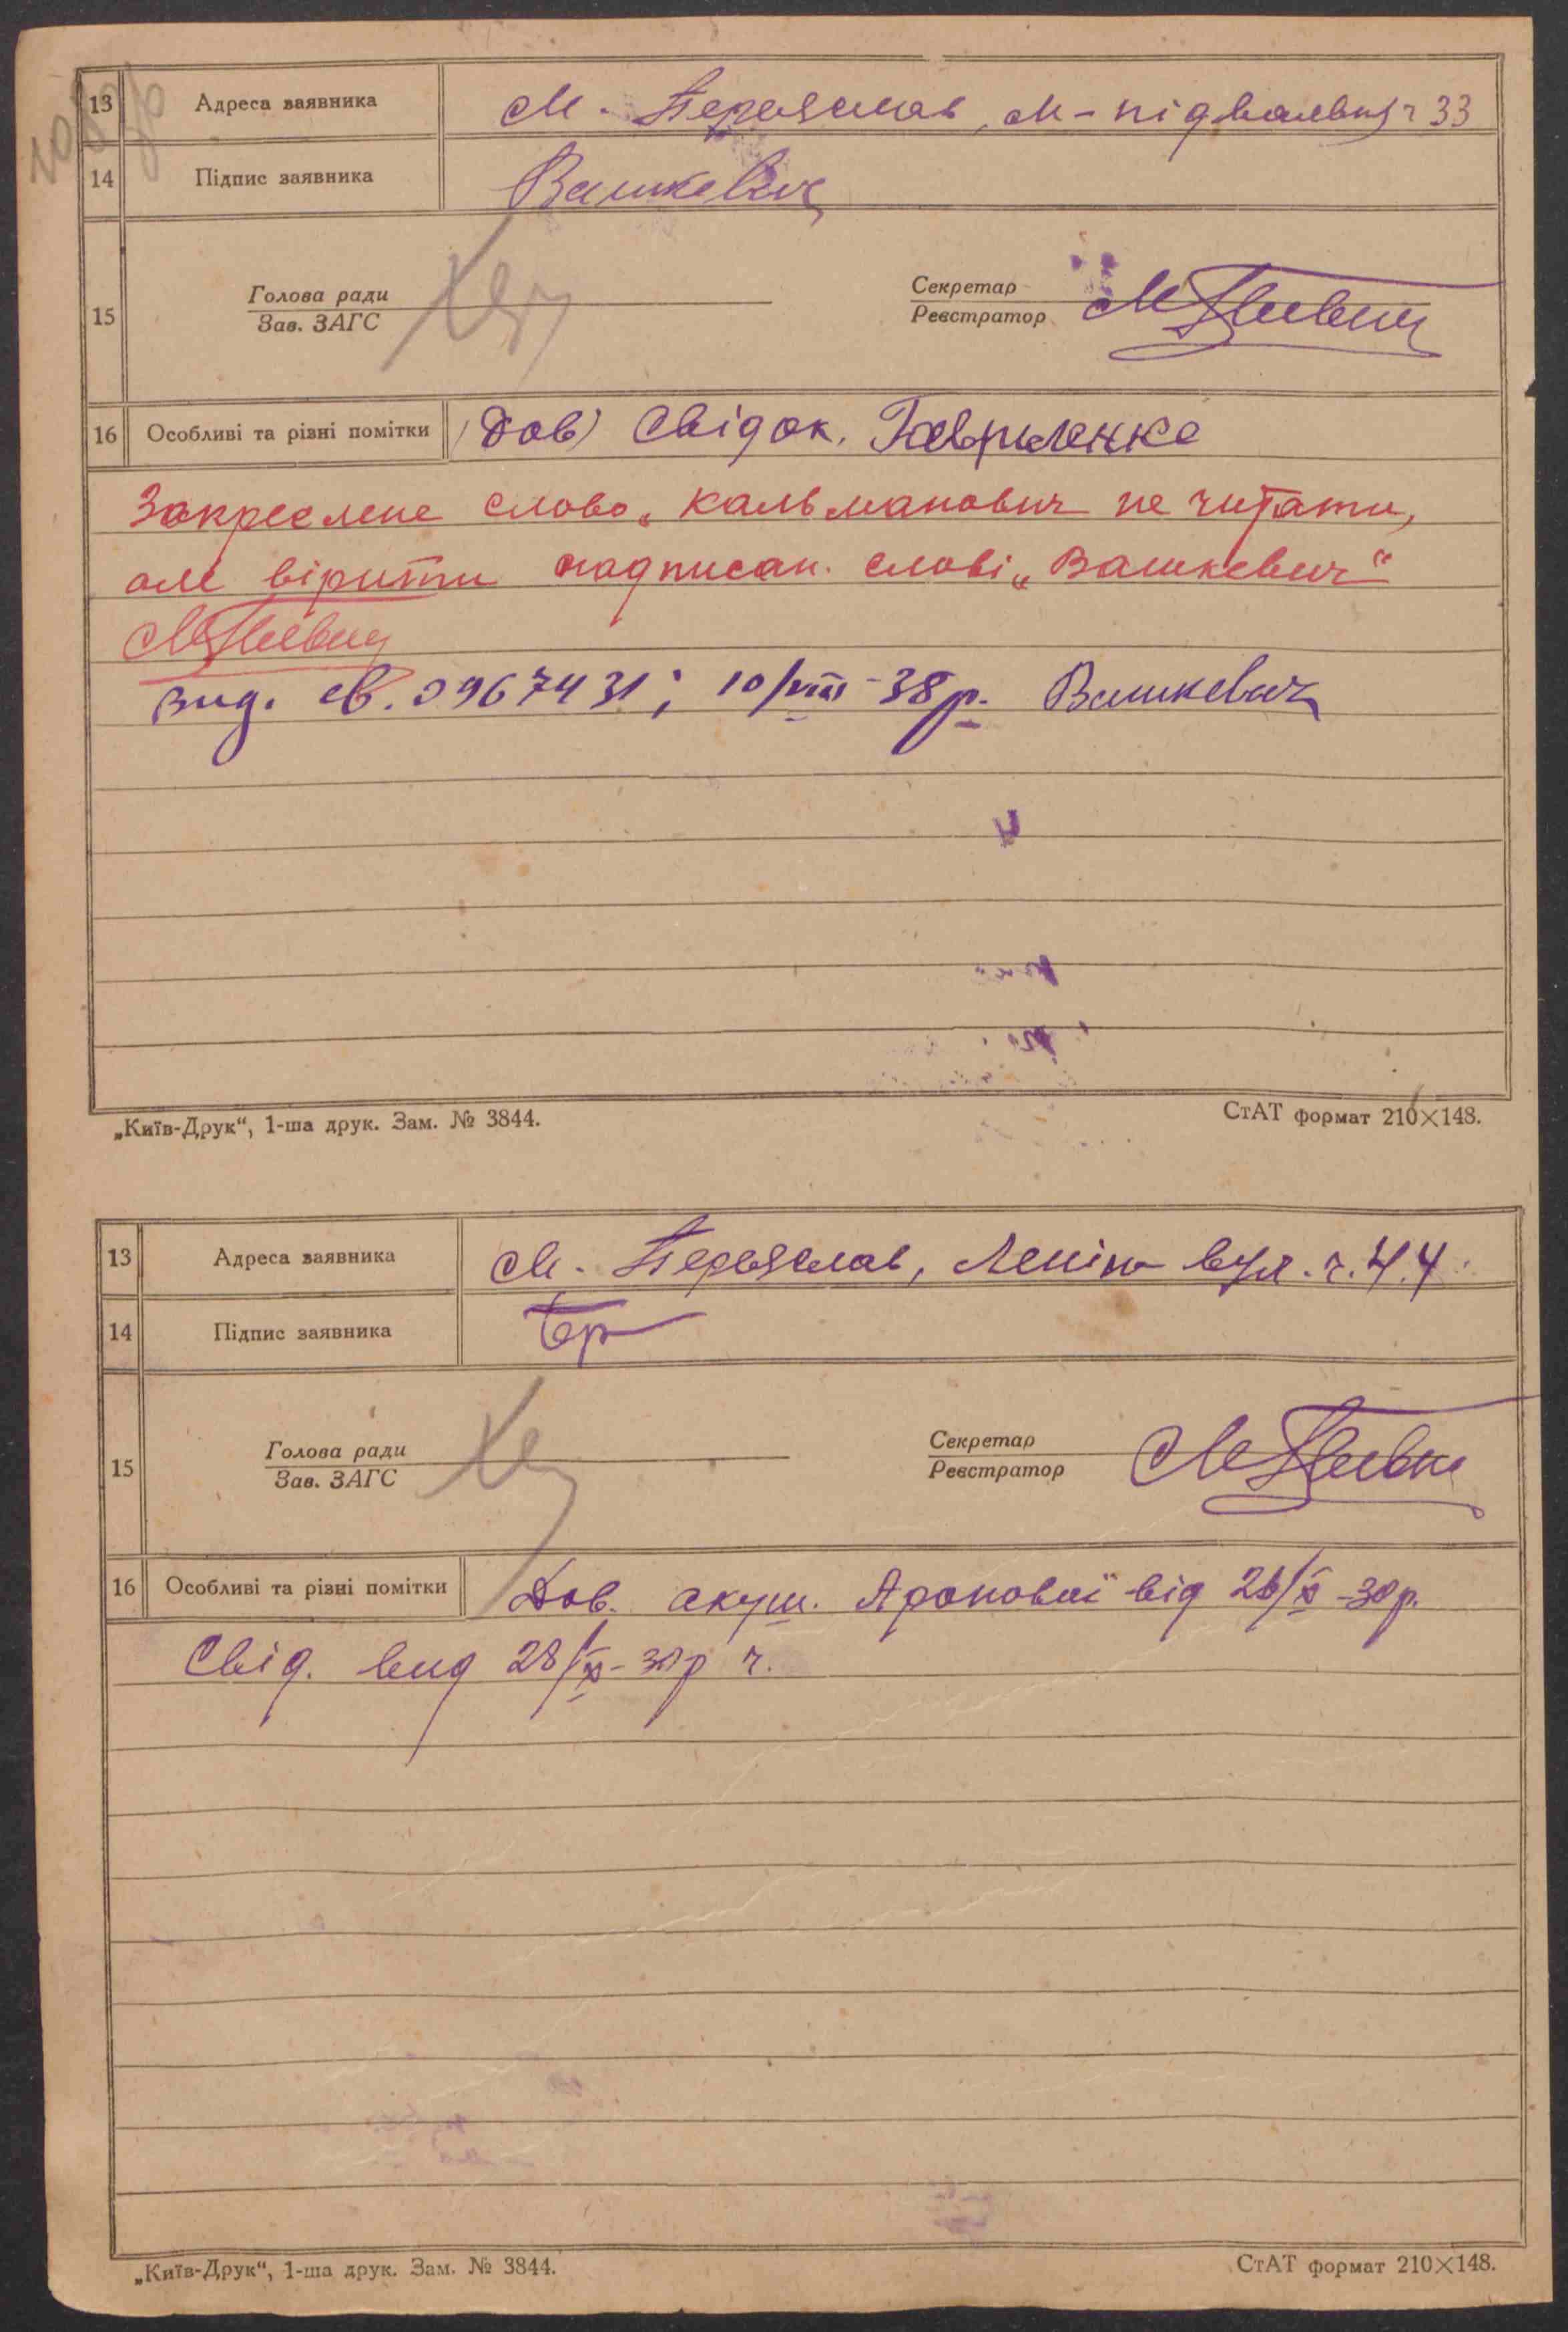 13 Адреса заявника М. Переяслав, М-підвальна ч 33
14 Підпис заявника Вашкевич
15 Голова ради
Зав. ЗАГС
Секретар
Реєстратор
16 Особливі та різні помітки Дов) Свідок. Гавриленко
Закреслене слово „Кальманович не читати,
але вірити надписан. слові „Вашкевич“
вид. св. 0967431; 10/VIII-38р. Вашкевич
„Київ-Друк“, 1-ша друк. Зам. № 3844. СтАТ формат 210×148.
13 Адреса заявника М. Переяслав, Леніна вул. ч. 44
14 Підпис заявника
15 Голова ради
Зав. ЗАГС
Секретар
Реєстратор
16 Особливі та різні помітки Дов. акуш. Аронової від
Свід. вид 28/X-30р ч.
„Київ-Друк“, 1-ша друк. Зам. № 3844. СтАТ формат 210×148.